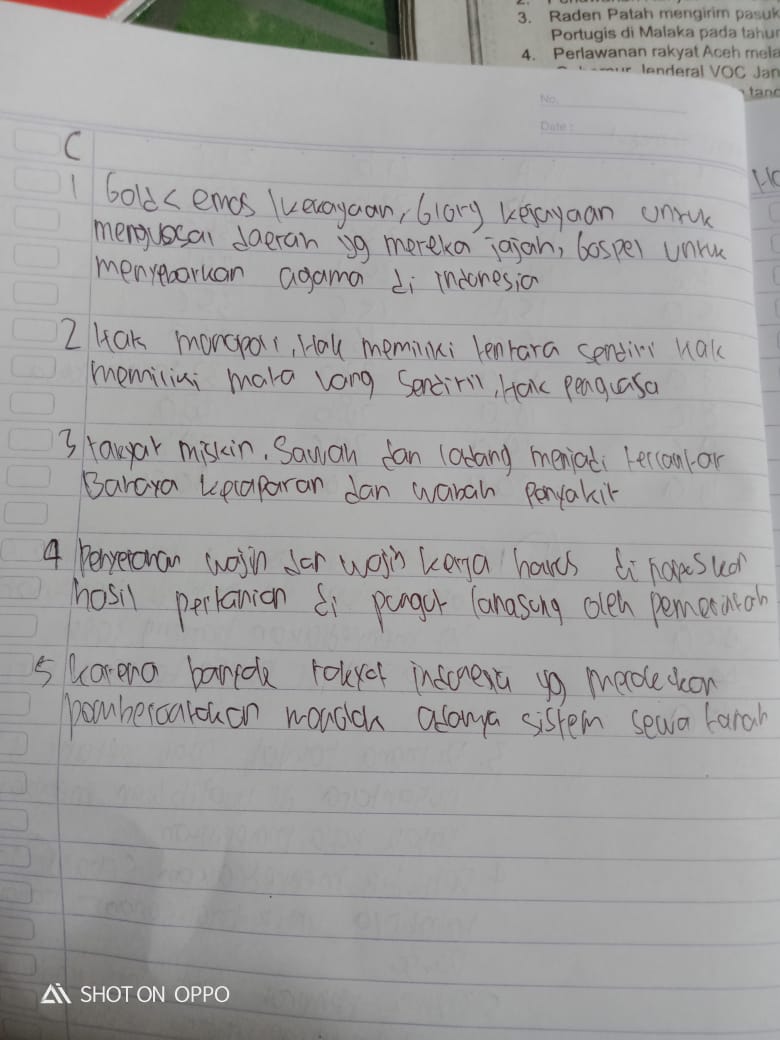 3. Raden Patah mengirim pasuk
Portugis di Malaka pada tahur
4. Perlawanan rakyat Aceh mela
Jenderal VOC Jan
tand
No.
Date :
C
1 Gold < emas / kekayaan, Glory kejayaan untuk
menguasai daerah yg mereka jajah, Gospel untuk
menyebarkan agama di indonesia
2 Hak monopoli, Hak memiliki tentara sendiri Hak
memiliki mata uang sendirii, Hak penguasa
3 rakyat miskin. Sawah dan ladang menjadi
Bahaya kelaparan dan wabah penyakit
4 Penyerahan wajib dan wajib kerja harus di hapuskan
hasil pertanian di pungut langsung oleh pemerintah
5 karena banyak rakyat indonesia yg
adanya sistem sewa tanah
SHOT ON OPPO